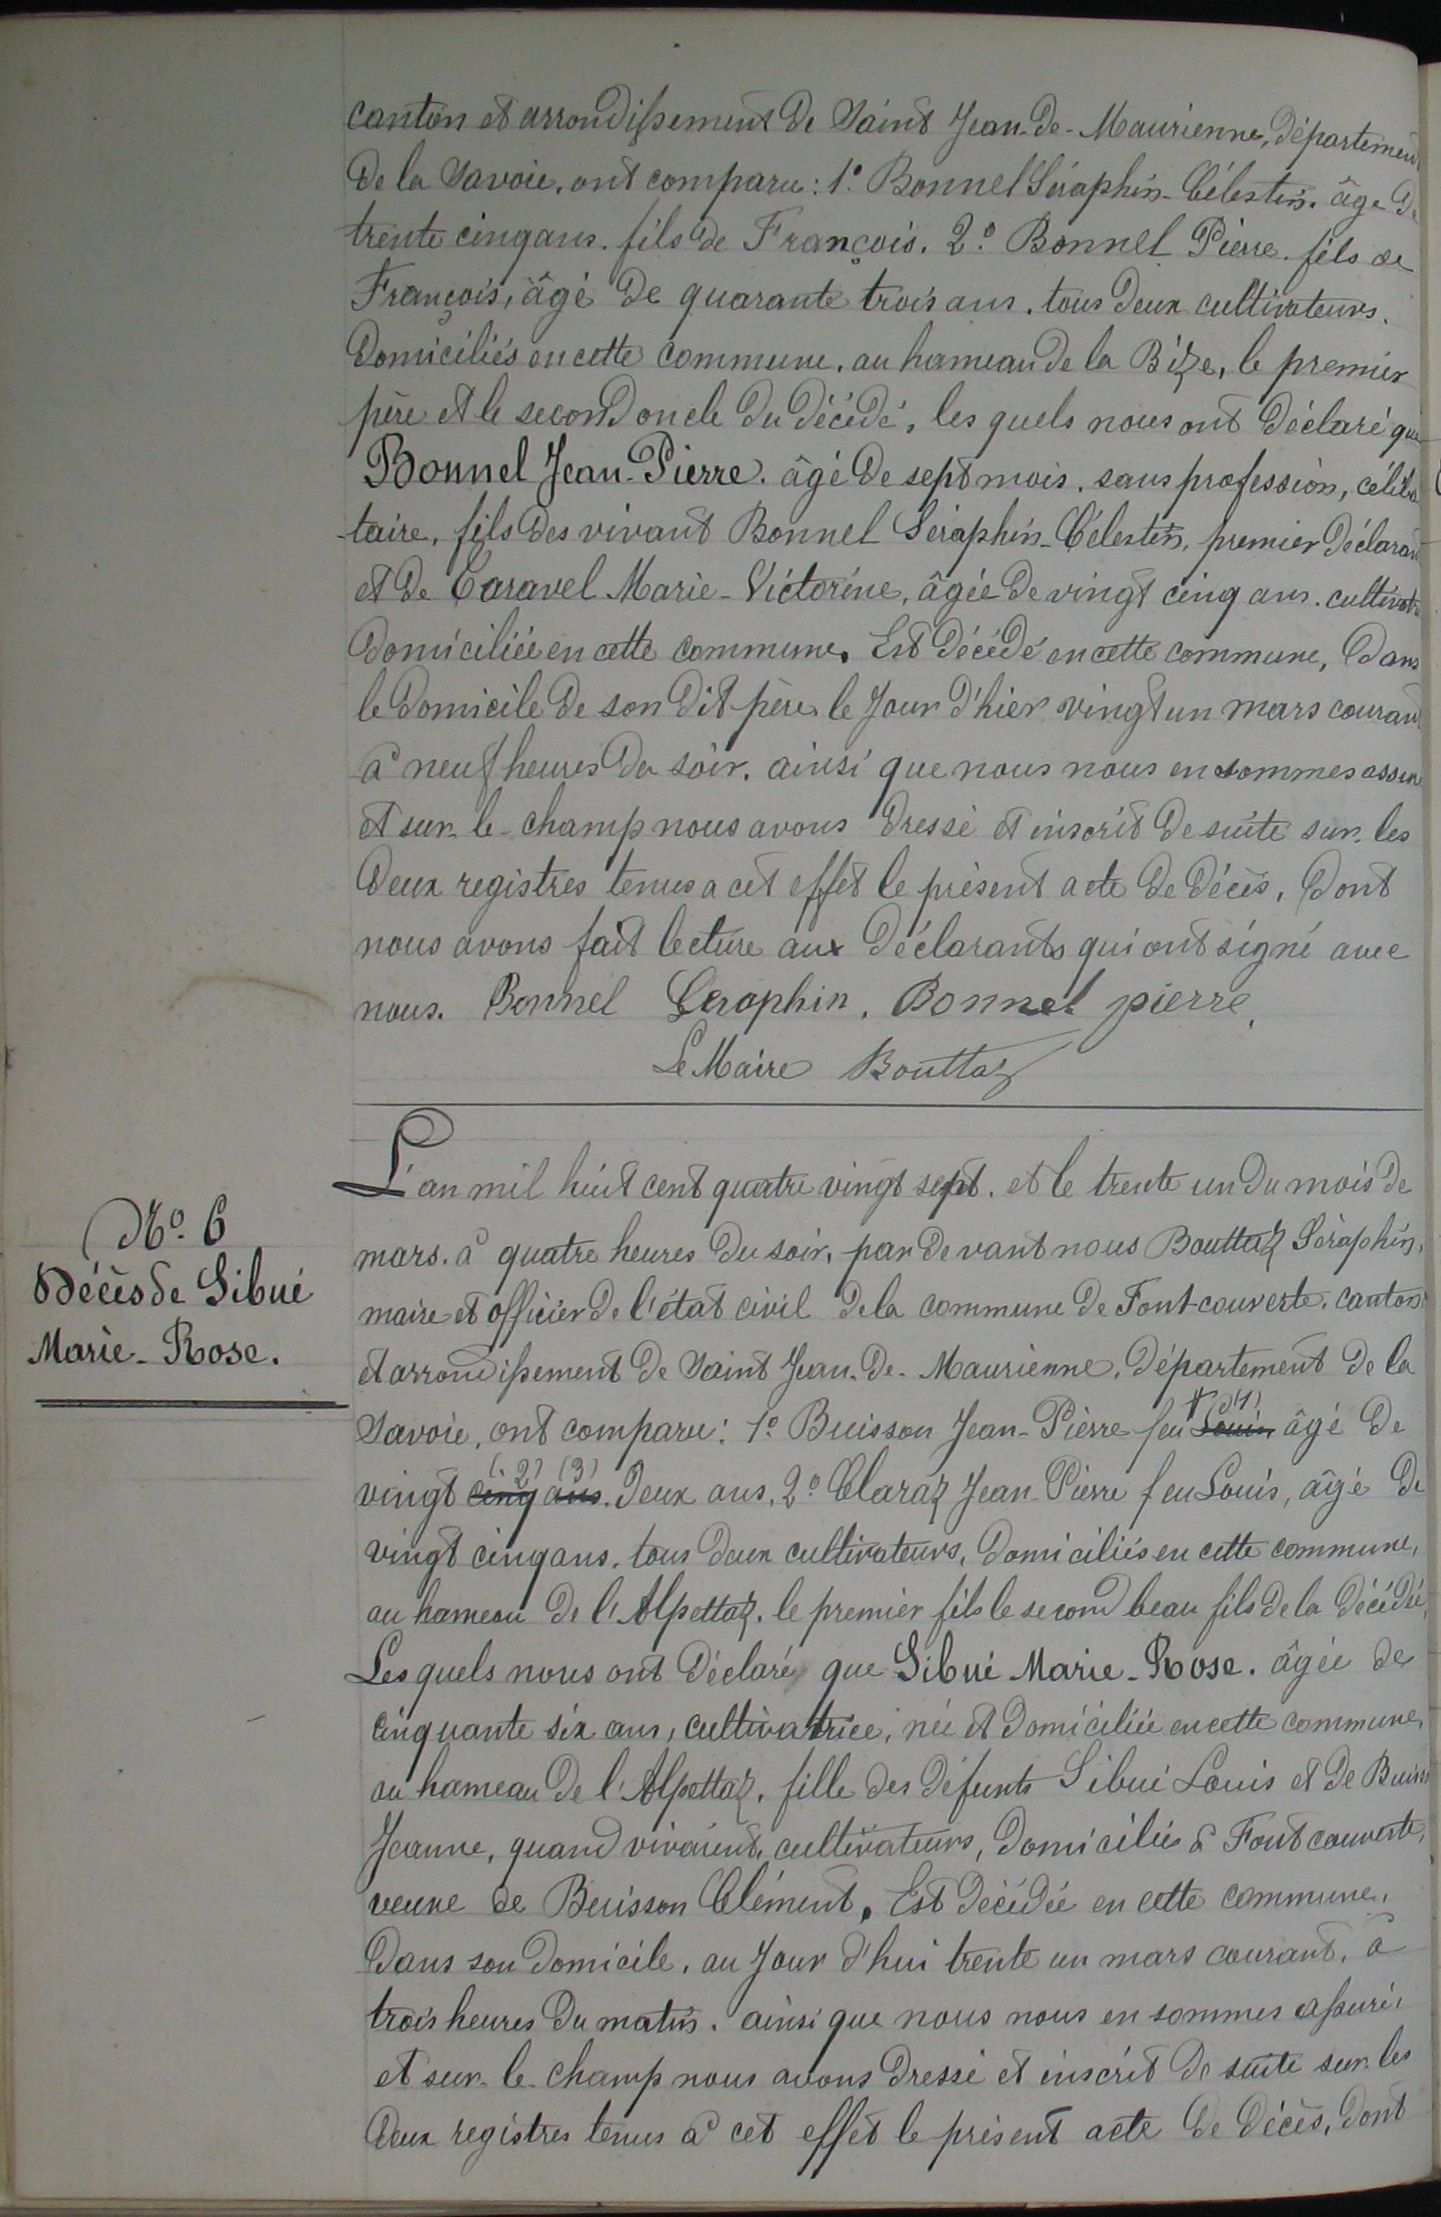 canton et arrondissement de Saint Jean-de-Maurienne, département
de la Savoie, ont comparu : 1º Bonnel Séraphin-Célestin. âge de
trente cinq ans. fils de François. 2º Bonnel Pierre. fils de
François, âgé de quarante trois ans. tous deux cultivateurs.
domiciliés en cette commune, au hameau de la Bize, le premier
père et le second oncle du décédé, les quels nous ont déclaré que
Bonnel Jean-Pierre. âgé de sept mois. sans profession, céliba
taire, fils des vivant Bonnel Séraphin-Célestin, premier déclarant
et de Caravel Marie-Victorine, âgée de vingt cinq ans. cultivatr
domiciliée en cette commune. Est décédé en cette commune, dans
le domicile de son dit père le jour d'hier vingt un mars courant
à neuf heures du soir. ainsi que nous nous en sommes assuré
et sur-le-champ nous avons dressé et inscrit de suite sur les
deux registres tenus a cet effet le présent acte de décès, dont
nous avons fait lecture aux déclarants qui ont signé avec
nous. Bonnel Seraphin. Bonnel pierre.
Le Maire Bouttaz
L'an mil huit cent quatre vingt sept. et le trente un du mois de
Nº 6
mars. à quatre heures du soir, par devant nous Bouttaz Séraphin,
Décès de Sibué
maire et officier de l'état civil de la commune de Font-couverte. canton
Marie-Rose.
et arrondissement de Saint Jean-de-Maurienne. département de la
(1)
Savoie, ont comparu : 1º Buisson Jean-Pierre feu Louis âgé de
(2) (3)
vingt cinq ans. deux ans. 2º Claraz Jean-Pierre feu Louis, âgé de
vingt cinq ans. tous deux cultivateurs, domiciliés en cette commune,
au hameau de l'Alpettaz. le premier fils le second beau fils de la décédée,
Les quels nous ont déclaré que Sibué Marie-Rose. âgée de
cinquante six ans, cultivatrice, née et domiciliée en cette commune,
au hameau de l'Alpettaz. fille des défunts Sibué Louis et de Buisson
Jeanne, quand vivaient, cultivateurs, domiciliés à Fontcouverte,
veuve de Buisson Clément. Est décédée en cette commune.
dans son domicile. au jour d'hui trente un mars courant, à
trois heures du matin. ainsi que nous nous en sommes assuré,
et sur-le-champ nous avons dressé et inscrit de suite sur les
deux registres tenus à cet effet le présent acte de décès, dont